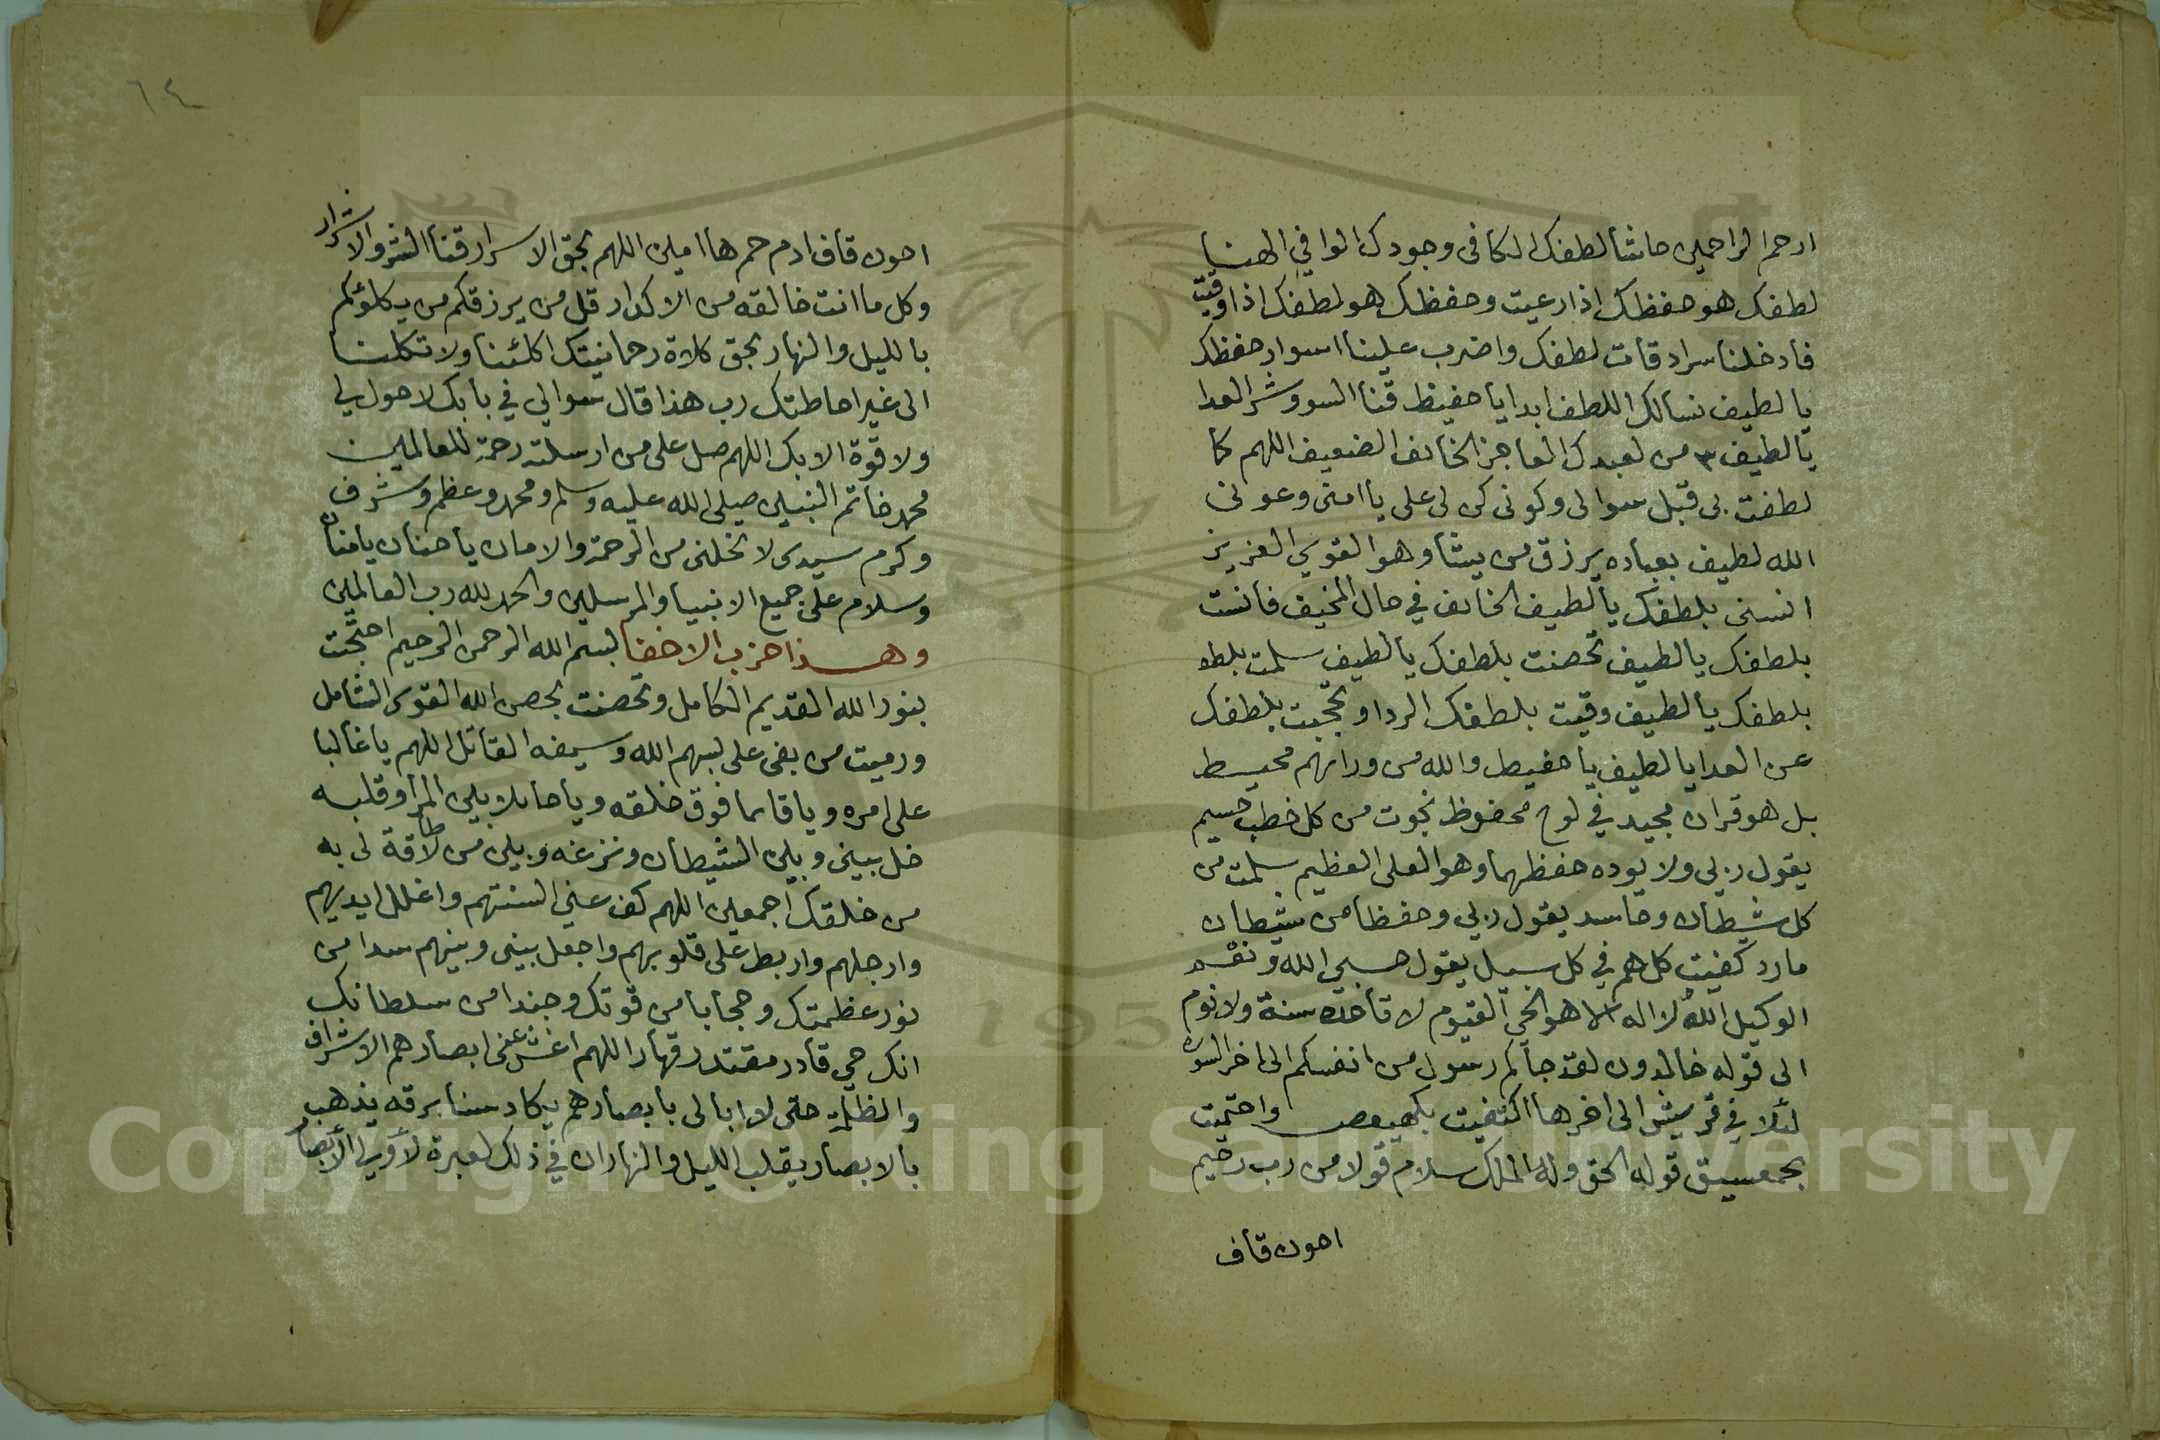 ارحم الراحمين حاشا لطفك الكافى وجودك الوافي الهنا
لطفك هو حفظك اذا رعيت وحفظك هو لطفك اذا وقيت
فادخلنا سرادقات لطفك واضرب علينا اسوار حفظك
يا لطيف نسالك اللطف ابدا يا حفيظ قنا السو وشر العدا
يا لطيف ٣ من لعبدك العاجز الخائف الضعيف اللهم كما
لطفت بى قبل سوالى وكونى كن لى لا على يا امنى وعونى
الله لطيف بعباده يرزق من يشا وهو القوي العزيز
انسنى بلطفك يا لطيف الخائف في حال المخيف فانست
بلطفك يا لطيف تحصنت بلطفك يا لطيف سلمت بلطو
بلطفك يا لطيف وقيت بلطفك الردا وتحجبت بلطفك
عن العدا يا لطيف يا حفيظ والله من ورائهم محيط
بل هو قران مجيد في لوح محفوظ نجوت من كل خطب جسيم
يقول ربي ولا يوده حفظهما وهو العلى العظيم سلمت من
كل شيطان وحاسد بقول ربي وحفظا من شيطان
مارد كفيت كل هم في كل سبيل بقول حسبي الله ونعم
الوكيل الله لا اله الا هو الحي القيوم لا تأخذه سنة ولا نوم
الى قوله خالدون لقد جاكم رسول من انفسكم الى اخر السوره
لئلاف قريش الى اخرها اكتفيت بكهيعص واحتميت
بحمعسق قوله الحق وله الملك سلام قولا من رب رحيم
احون قاف
٦٤
احون قاف ادم حم ها امين اللهم بحق الاسرار قنا الشر والاشرار
وكل ما انت خالقه من الاكدار قل من يرزقكم من يكلؤكم
بالليل والنهار بحق كلاة رحمانيتك اكلئنا ولا تكلنا
الى غير احاطتك رب هذا قال سوالي في بابك لا حول لي
ولا قوة الا بك اللهم صل على من ارسلته رحمة للعالمين
محمد خاتم النبيين صلى الله عليه وسلم ومحمد وعظم وشرف
وكرم سيدى لا تخلنى من الرحمة والامان يا حنان يا منان
وسلام على جميع الانبيا والمرسلين والحمد لله رب العالمين
وهذا حزب الاخفا بسم الله الرحمن الرحيم احتجبت
بنور الله القديم الكامل وتحصنت بحصن الله القوى الشامل
ورميت من بغى على بسهم الله وسيفه القاتل اللهم يا غالبا
على امره ويا قائما فوق خلقه ويا حائلا بين المرأ وقلبه
خل بينى وبين الشيطان ونزغه وبين من لا طاقة لى به
من خلقك اجمعين اللهم كف عني السنتهم واغلل ايديهم
وارجلهم واربط على قلوبهم واجعل بينى وبينهم سدا من
نور عظمتك وحجابا من قوتك وجندا من سلطانك
انك حي قادر مقتدر قهار اللهم اغش عنى ابصارهم الاشراف
والظلمة حتى لا ابالى بابصارهم يكاد سنا برقه يذهب
بالابصار يقلب الليل والنهار ان في ذلك لعبرة لأولي الأبصار
Copyright © King Saud University
195